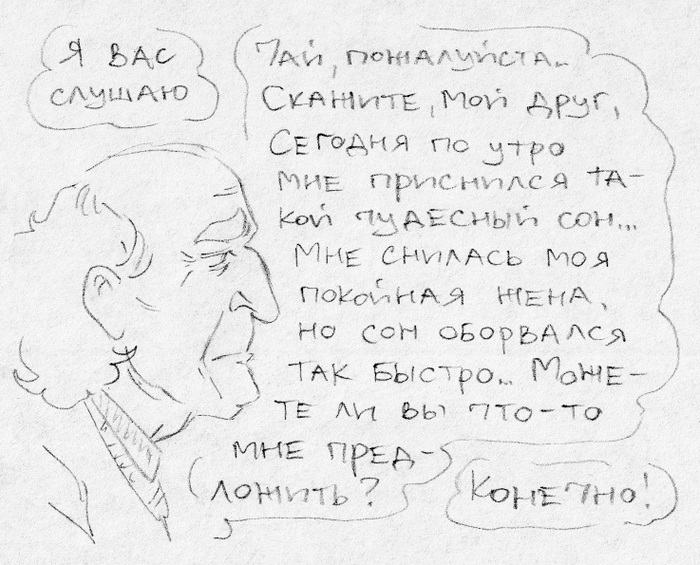 Я ВАС
СЛУШАЮ
ЧАЙ, ПОЖАЛУЙСТА..
СКАЖИТЕ, МОЙ ДРУГ,
СЕГОДНЯ ПО УТРО
МНЕ ПРИСНИЛСЯ ТА-
КОЙ ЧУДЕСНЫЙ СОН...
МНЕ СНИЛАСЬ МОЯ
ПОКОЙНАЯ ЖЕНА,
НО СОН ОБОРВАЛСЯ
ТАК БЫСТРО... МОЖЕ-
ТЕ ЛИ ВЫ ЧТО-ТО
МНЕ ПРЕД-
ЛОЖИТЬ?
КОНЕЧНО!